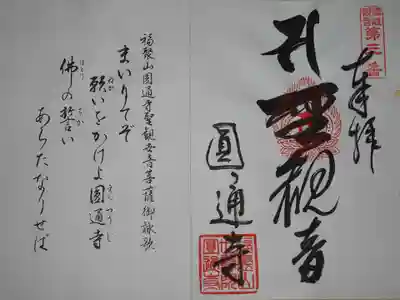 第三番
奉拝
聖観音
圓通寺
福聚山圓通寺聖観世音菩薩御詠歌
まいりてぞ
願いをかけよ圓通寺
佛の誓い
あらたなりせば